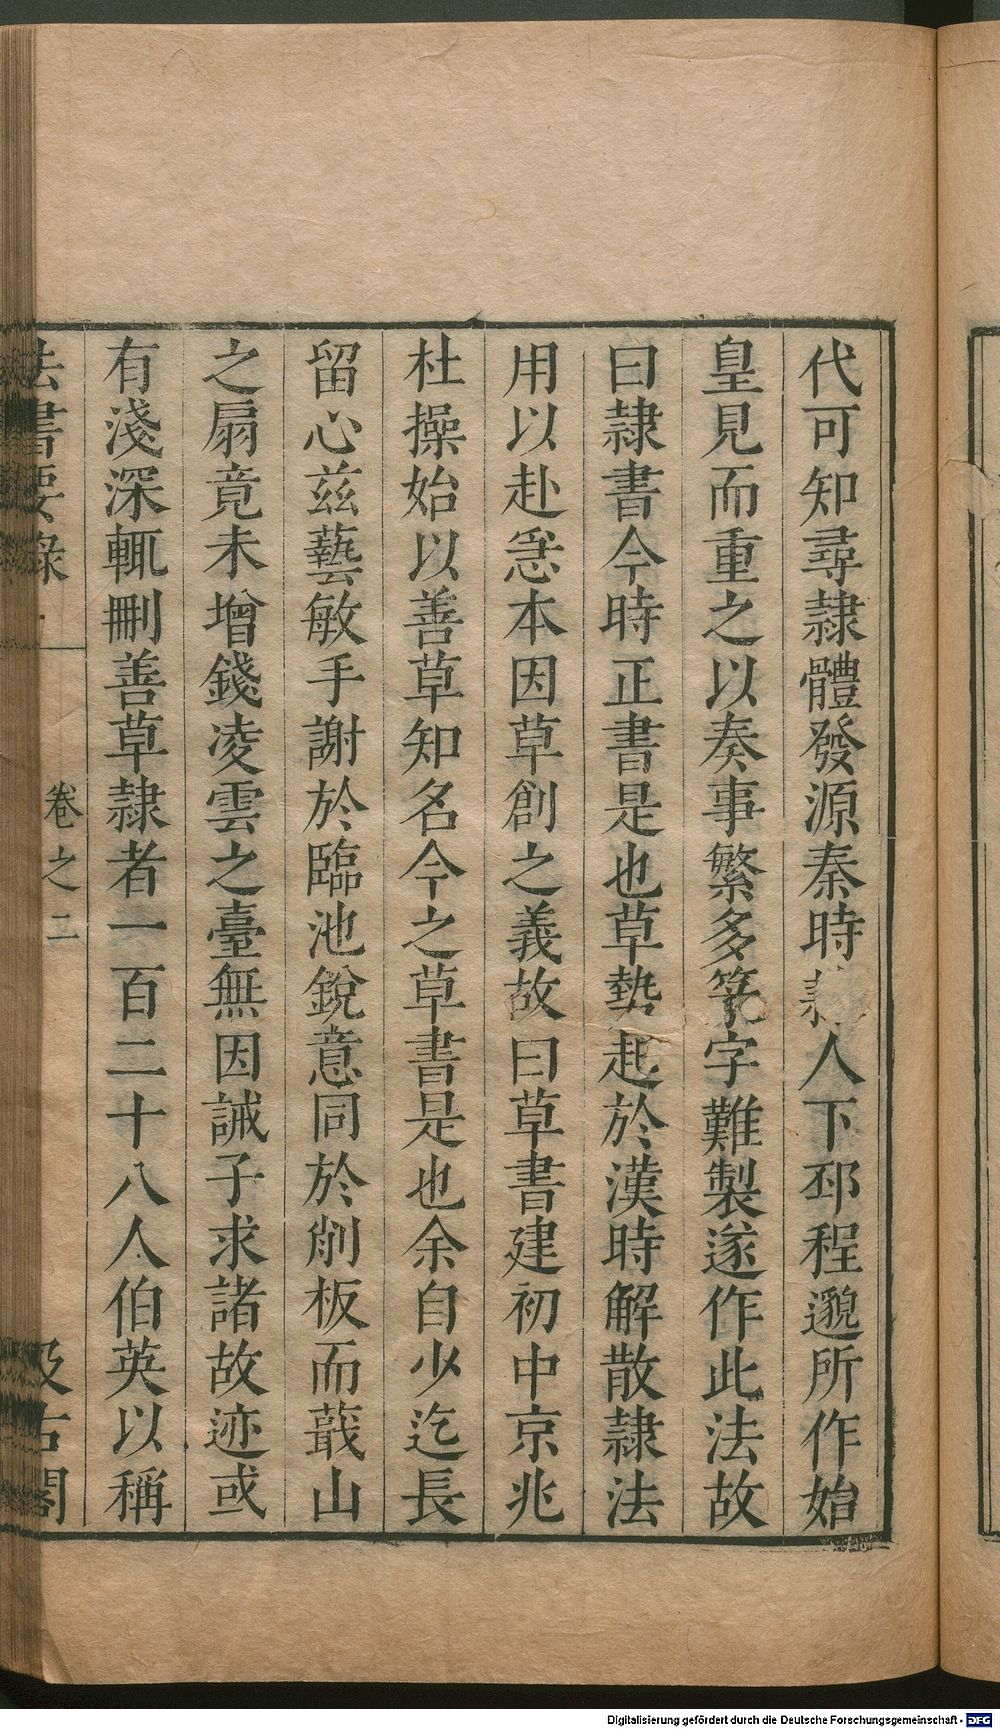 代可知尋隸體發源秦時隸人下邳程邈所作始
皇見而重之以奏事繁多篆字難製遂作此法故
曰隸書今時正書是也草勢起於漢時解散隸法
用以赴急本因草創之義故曰草書建初中京兆
杜操始以善草知名今之草書是也余自少迄長
留心兹藝敏手謝於臨池銳意同於削板而蕺山
之扇竟未增錢凌雲之臺無因誡子求諸故迹或
有淺深輒刪善草隸者一百二十八人伯英以稱
法書要錄
卷之二
汲古閣
Digitalisierung gefördert durch die Deutsche Forschungsgemeinschaft - DFG